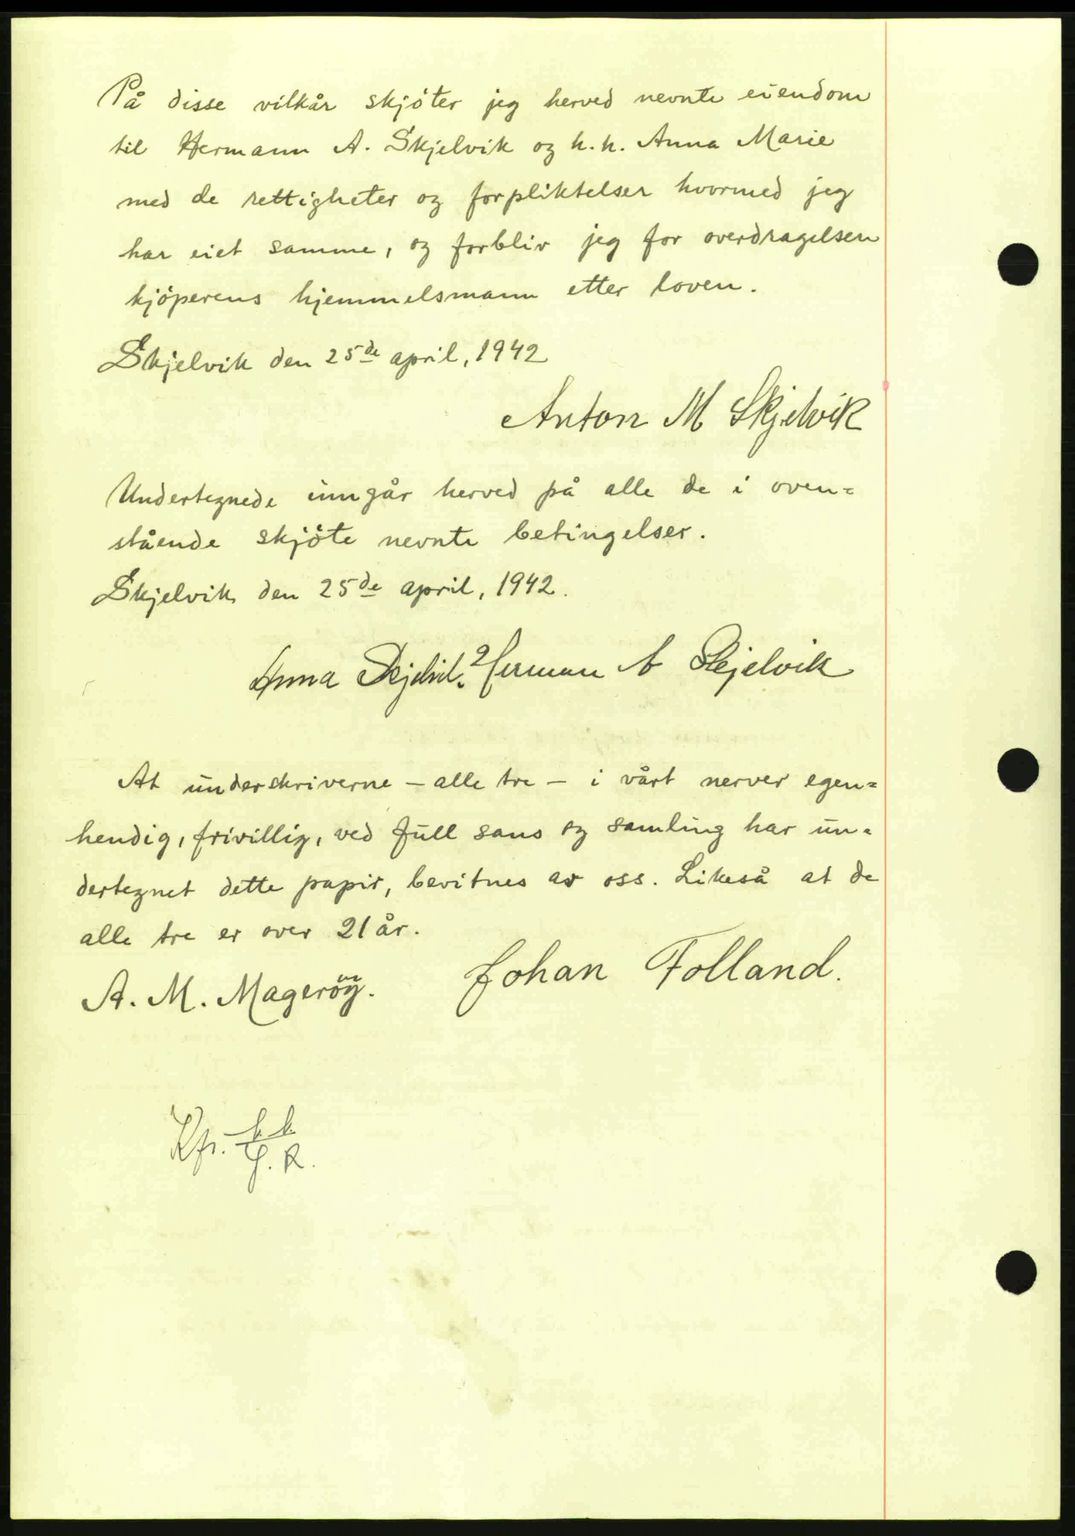 På disse vilkår skjöter jeg herved nevnte eiendom
til Hermann A. Skjelvik og h.h. Anna Marie
med de rettigheter og forpliktelser hvormed jeg
har eiet samme, og forbliv jeg for overdragelsen
kjöperens hjemmelsmann etter loven.
Skjelvik den 25de april, 1942
Anton M Skjelvik
Undertegnede inngår herved på alle de i oven=
stående skjöte nevnte betingelser.
Skjelvik den 25de april, 1942.
Anna Skjelvik. Herman A Skjelvik
At underskriverne – alle tre – i vårt nerver egen=
hendig, frivillig, ved full sans og samling har un=
dertegnet dette papir, bevitnes av oss. Likeså at de
alle tre er over 21 år.
A. M. Mageröy. Johan Folland.
Kfr.